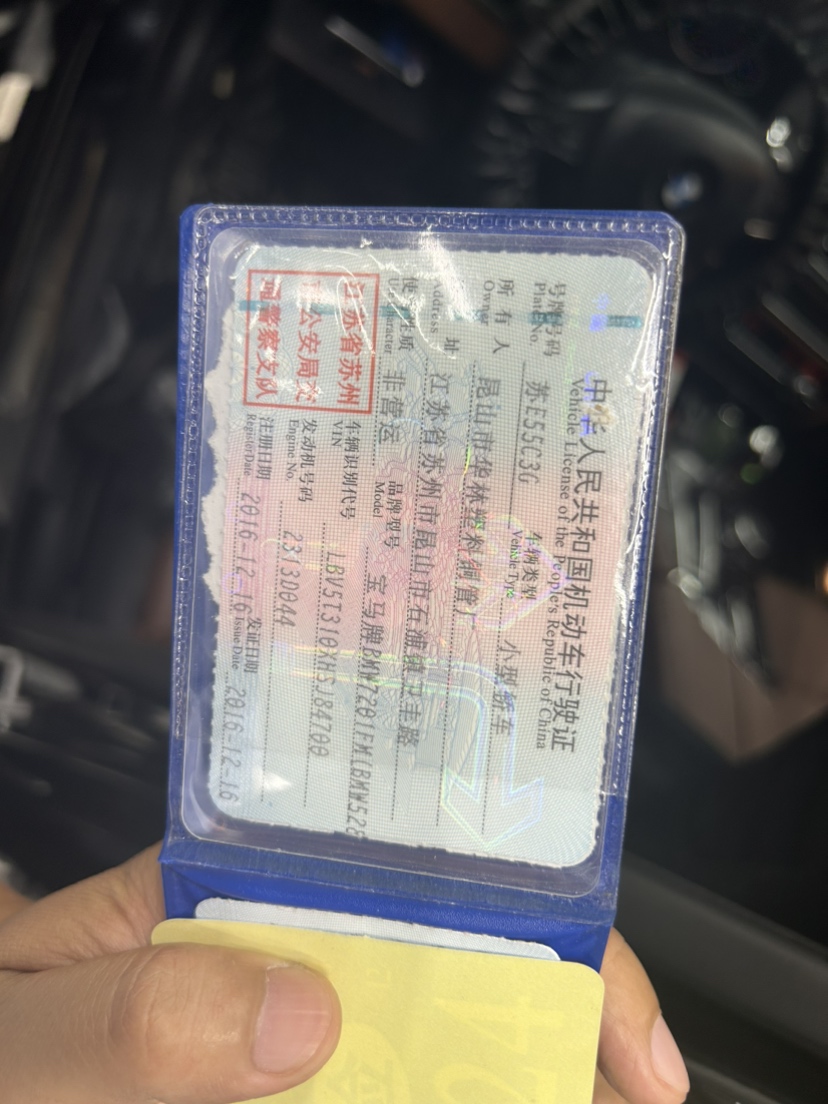 中华人民共和国机动车行驶证
Vehicle License of the People's Republic of China
号牌号码 苏E55C3G 车辆类型 小型轿车
Plate No. Vehicle Type
所有人 昆山市华林塑料制管厂
Owner
址 江苏省苏州市昆山市石浦镇卫丰路
Address
使 性质 非营运 品牌型号 宝马牌BMW7201FM(BMW528
Model
江苏省苏州
市公安局交
通警察支队
车辆识别代号 LBV5T310XHSJ84700
VIN
发动机号码 2313D044
Engine No.
注册日期 2016-12-16 发证日期 2016-12-16
Register Date Issue Date
24